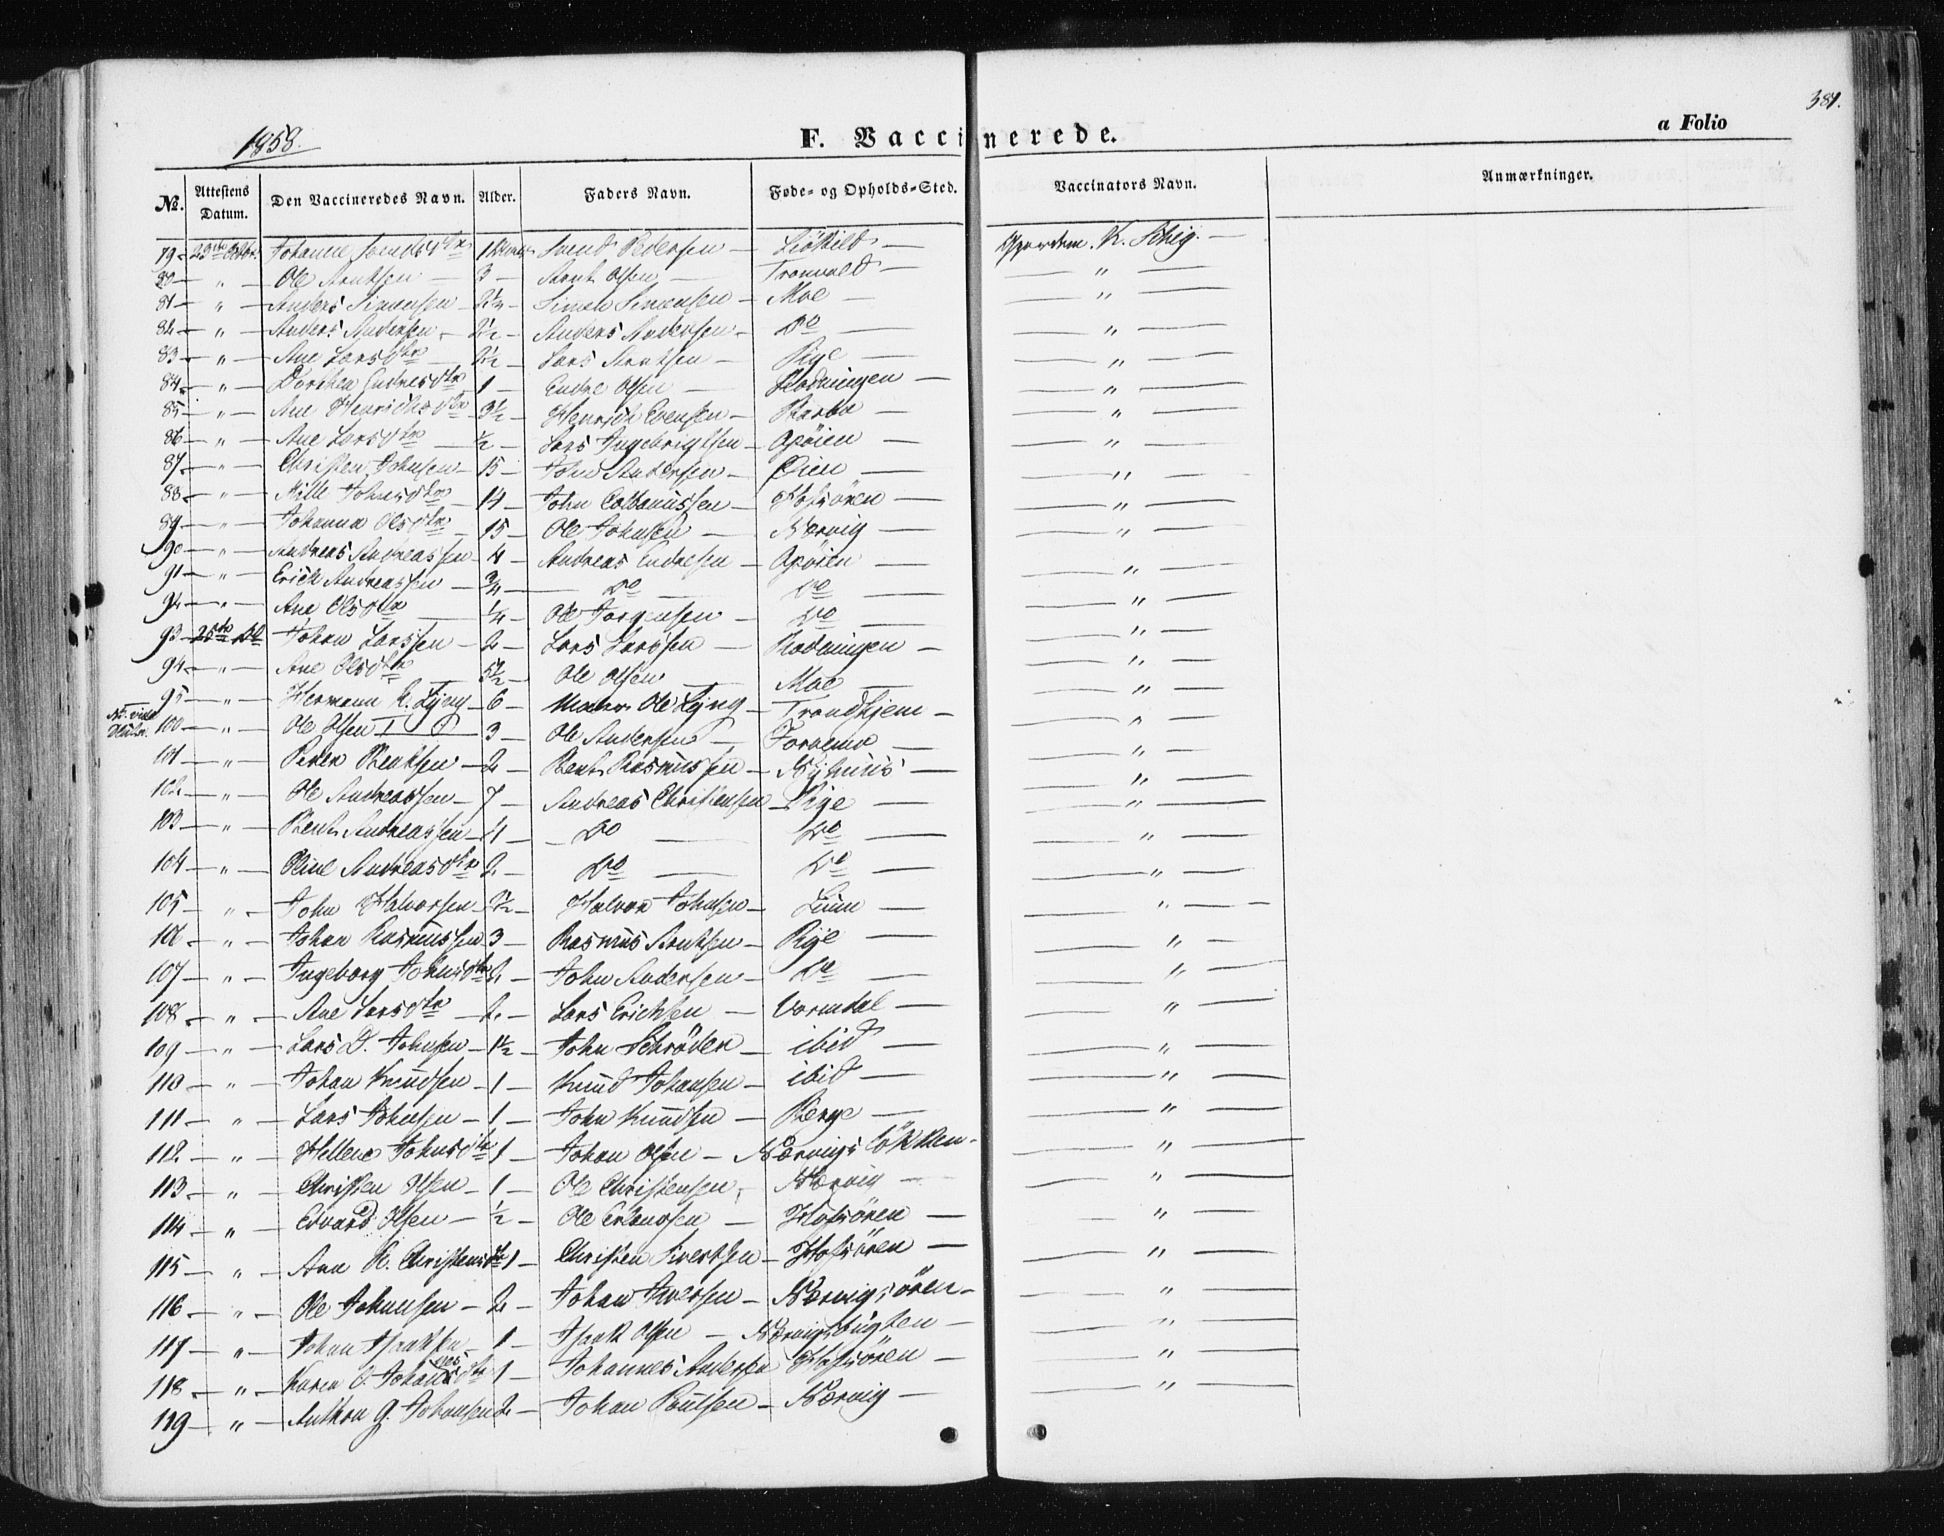 1858.
F. Vaccinerede.
a Folio
381.
No. Attestens Datum. Den Vaccineredes Navn. Alder. Faders Navn. Føde- og Opholds-Sted. Vaccinators Navn. Anmærkninger.
79 23de Octbr. Johanne Svendsdtr 1 Svend Pedersen K. Schig.
80 " Ole Arntsen 3 Arnt Olsen Tronvold "
81 " Anders Simonsen 2½ Simon Simonsen Moe "
82 " Anders Andersen 2½ Anders Andersen Do "
83 " Ane Larsdtr 2½ Lars Arntsen Rige "
84 " Dorthea Endresdtr 1 Endre Olsen Rødningen "
85 " Ane Henrichsdtr 3½ Henrich Evensen "
86 " Ane Larsdtr ½ Lars Ingebrigtsen Opøien "
87 " Christen Johnsen 15 John Andersen Øien "
88 " Mille Johnsdtr 14 John Colbanussen Hofsören "
89 " Johanna Olsdtr 15 Ole Johnsen Nervig "
90 " Andreas Andreassen 4 Andreas Endresen Opøien "
91 " Erich Andreassen ¾ Do Do "
92 " Ane Olsdtr ¼ Ole Jorgensen Do "
93 25de Do Johan Larssen 2 Lars Larssen Rødningen "
94 " Ane Olsdtr 5½ Ole Olsen Moe "
95 " Hermann K. Lyng 6 Ole Lyng Trondhjem "
100 " Ole Olsen 3 Ole Andersen Forvemo "
101 " Peder Bentsen 2 Bent Rasmussen Nyhuus "
102 " Ole Andreassen 7 Andreas Christensen Rige "
103 " Bent Andreassen 4 Do Do "
104 " Oline Andreasdtr 2 Do Do "
105 " John Halvorsen 2½ Halvor Johnsen "
106 " Johan Rasmussen 3 Rasmus Arntsen Rige "
107 " Ingeborg Johnsdtr 2 John Andersen Do "
108 " Ane Larsdtr 2 Lars Erichsen Vormdal "
109 " Lars D. Johnsen 1½ John Schrøder ibid "
110 " Johan Knudsen 1 Knud Johansen ibid "
111 " Lars Johnsen 1 John Knudsen Berge "
112 " Hellene Johnsdtr 1 Johan Olsen Nervigslökken "
113 " Christen Olsen 1 Ole Christensen Nervig "
114 " Edvard Olsen ½ Ole Erlandsen Hofsören "
115 " Ane K. Christensdtr 1 Christen Sivertsen Hofsören "
116 " Ole Johansen 2 Johan Iversen Nervigsören "
117 " Johan Isaksen 1 Isaak Olsen Nervigsbugten "
118 " Karen O. Johannesdtr 1 Johannes Andersen Hofsören "
119 " Anthon G. Johansen 2 Johan Poulsen Nervig